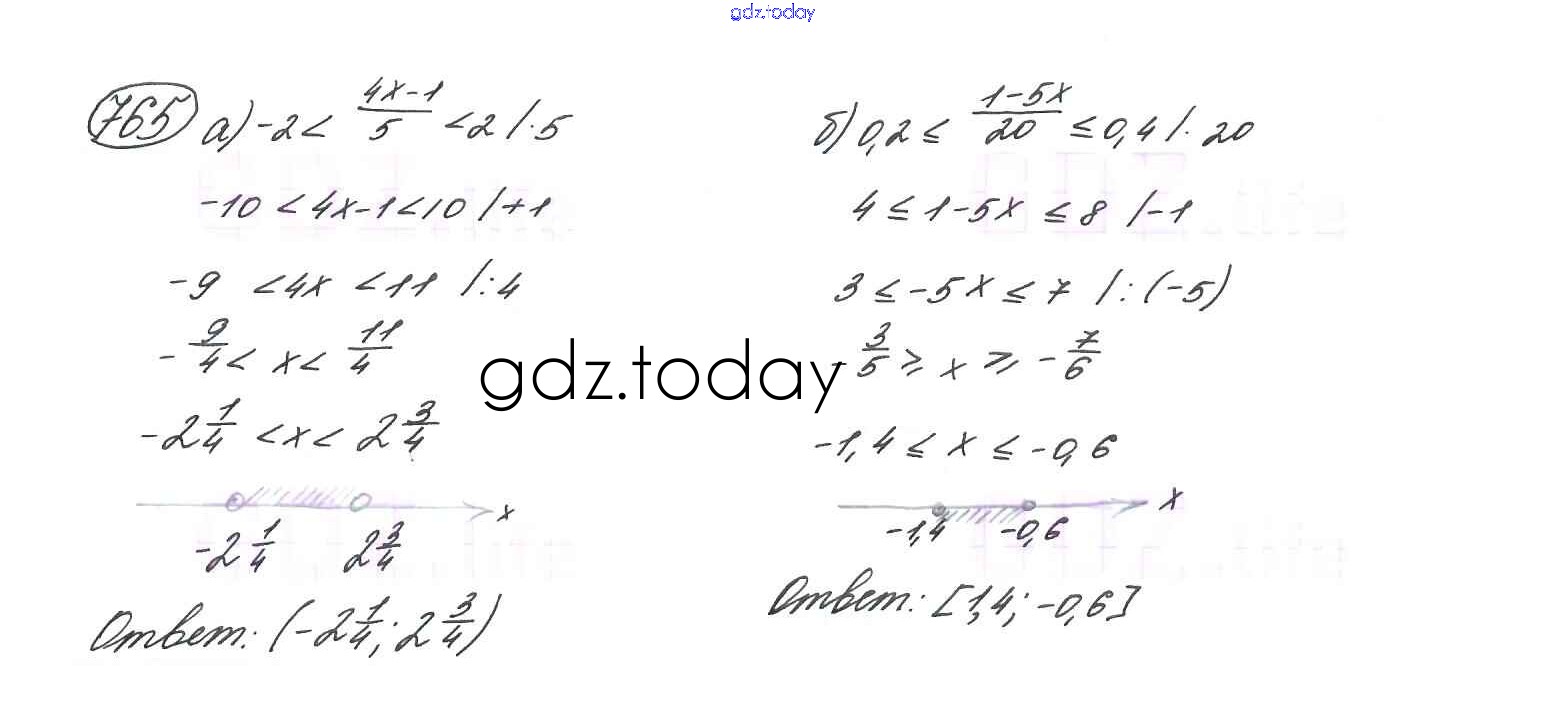 gdz.today
765 а) -2 < (4x-1)/5 < 2 /·5
-10 < 4x-1 < 10 /+1
-9 < 4x < 11 /:4
-9/4 < x < 11/4
-2 1/4 < x < 2 3/4
x
-2 1/4 2 3/4
Ответ: (-2 1/4; 2 3/4)
б) 0,2 ≤ (1-5x)/20 ≤ 0,4 /·20
4 ≤ 1-5x ≤ 8 /-1
3 ≤ -5x ≤ 7 /:(-5)
-3/5 ≥ x ≥ -7/6
-1,4 ≤ x ≤ -0,6
x
-1,4 -0,6
Ответ: [1,4; -0,6]
gdz.today